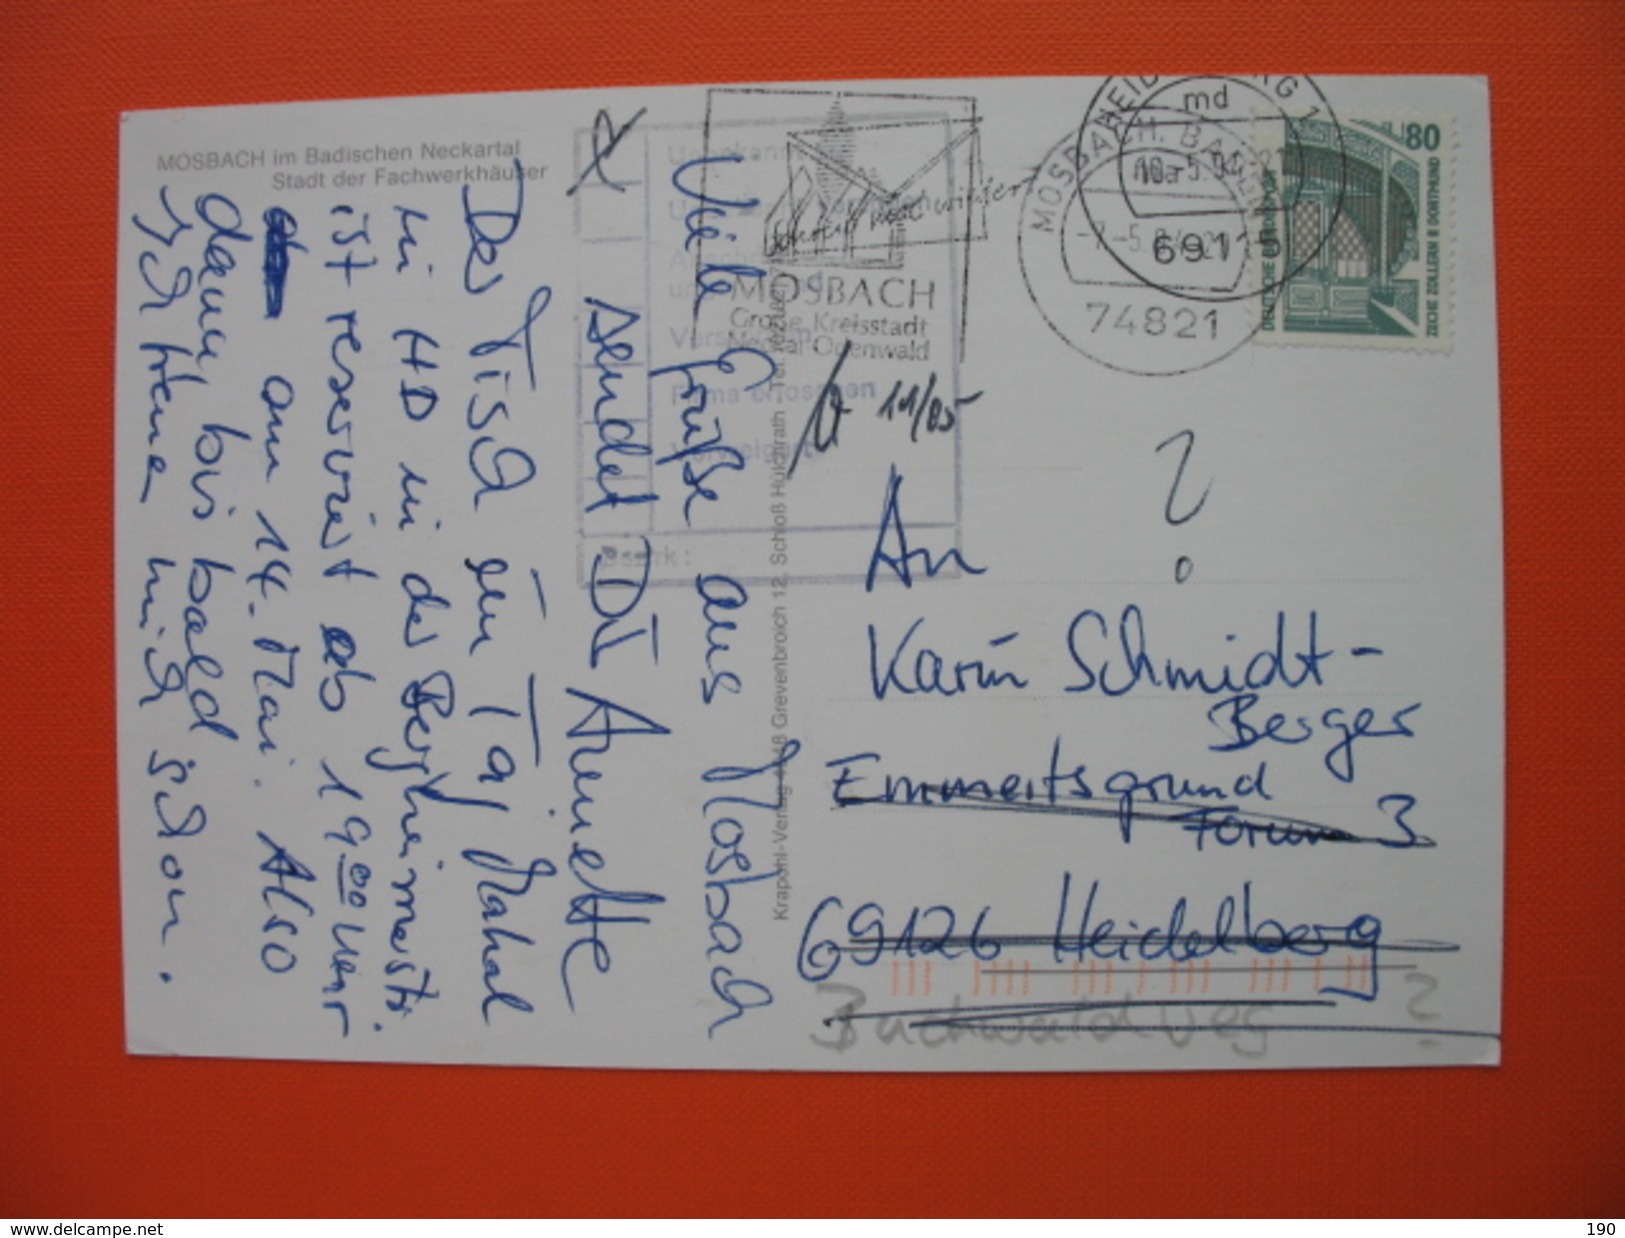 MOSBACH im Badischen Neckartal
Stadt der Fachwerkhäuser
Viele Grüße aus Mosbach
sendet Dir Annette
Der Tisch im Taj Mahal
in HD in der Bergheimerstr.
ist reserviert ab 19.00 Uhr
am 14. Mai. Also
dann bis bald
Ich freue mich schon.
Krapohl-Verlag 4048 Grevenbroich 12, Schloß Hülchrath
MOSBACH
Große Kreisstadt
Neckar-Odenwald
Firma erloschen
Verweigert
Bezirk:
11/85
HEIDELBERG 1
md
10.-5.94-21
69115
MOSBACH, BADEN
74821
80
DEUTSCHE BUNDESPOST
ZECHE ZOLLERN II DORTMUND
?
An
Karin Schmidt-
Berger
Emmertsgrund
Forum 3
69126 Heidelberg
Buchwaldweg ?
www.delcampe.net
190